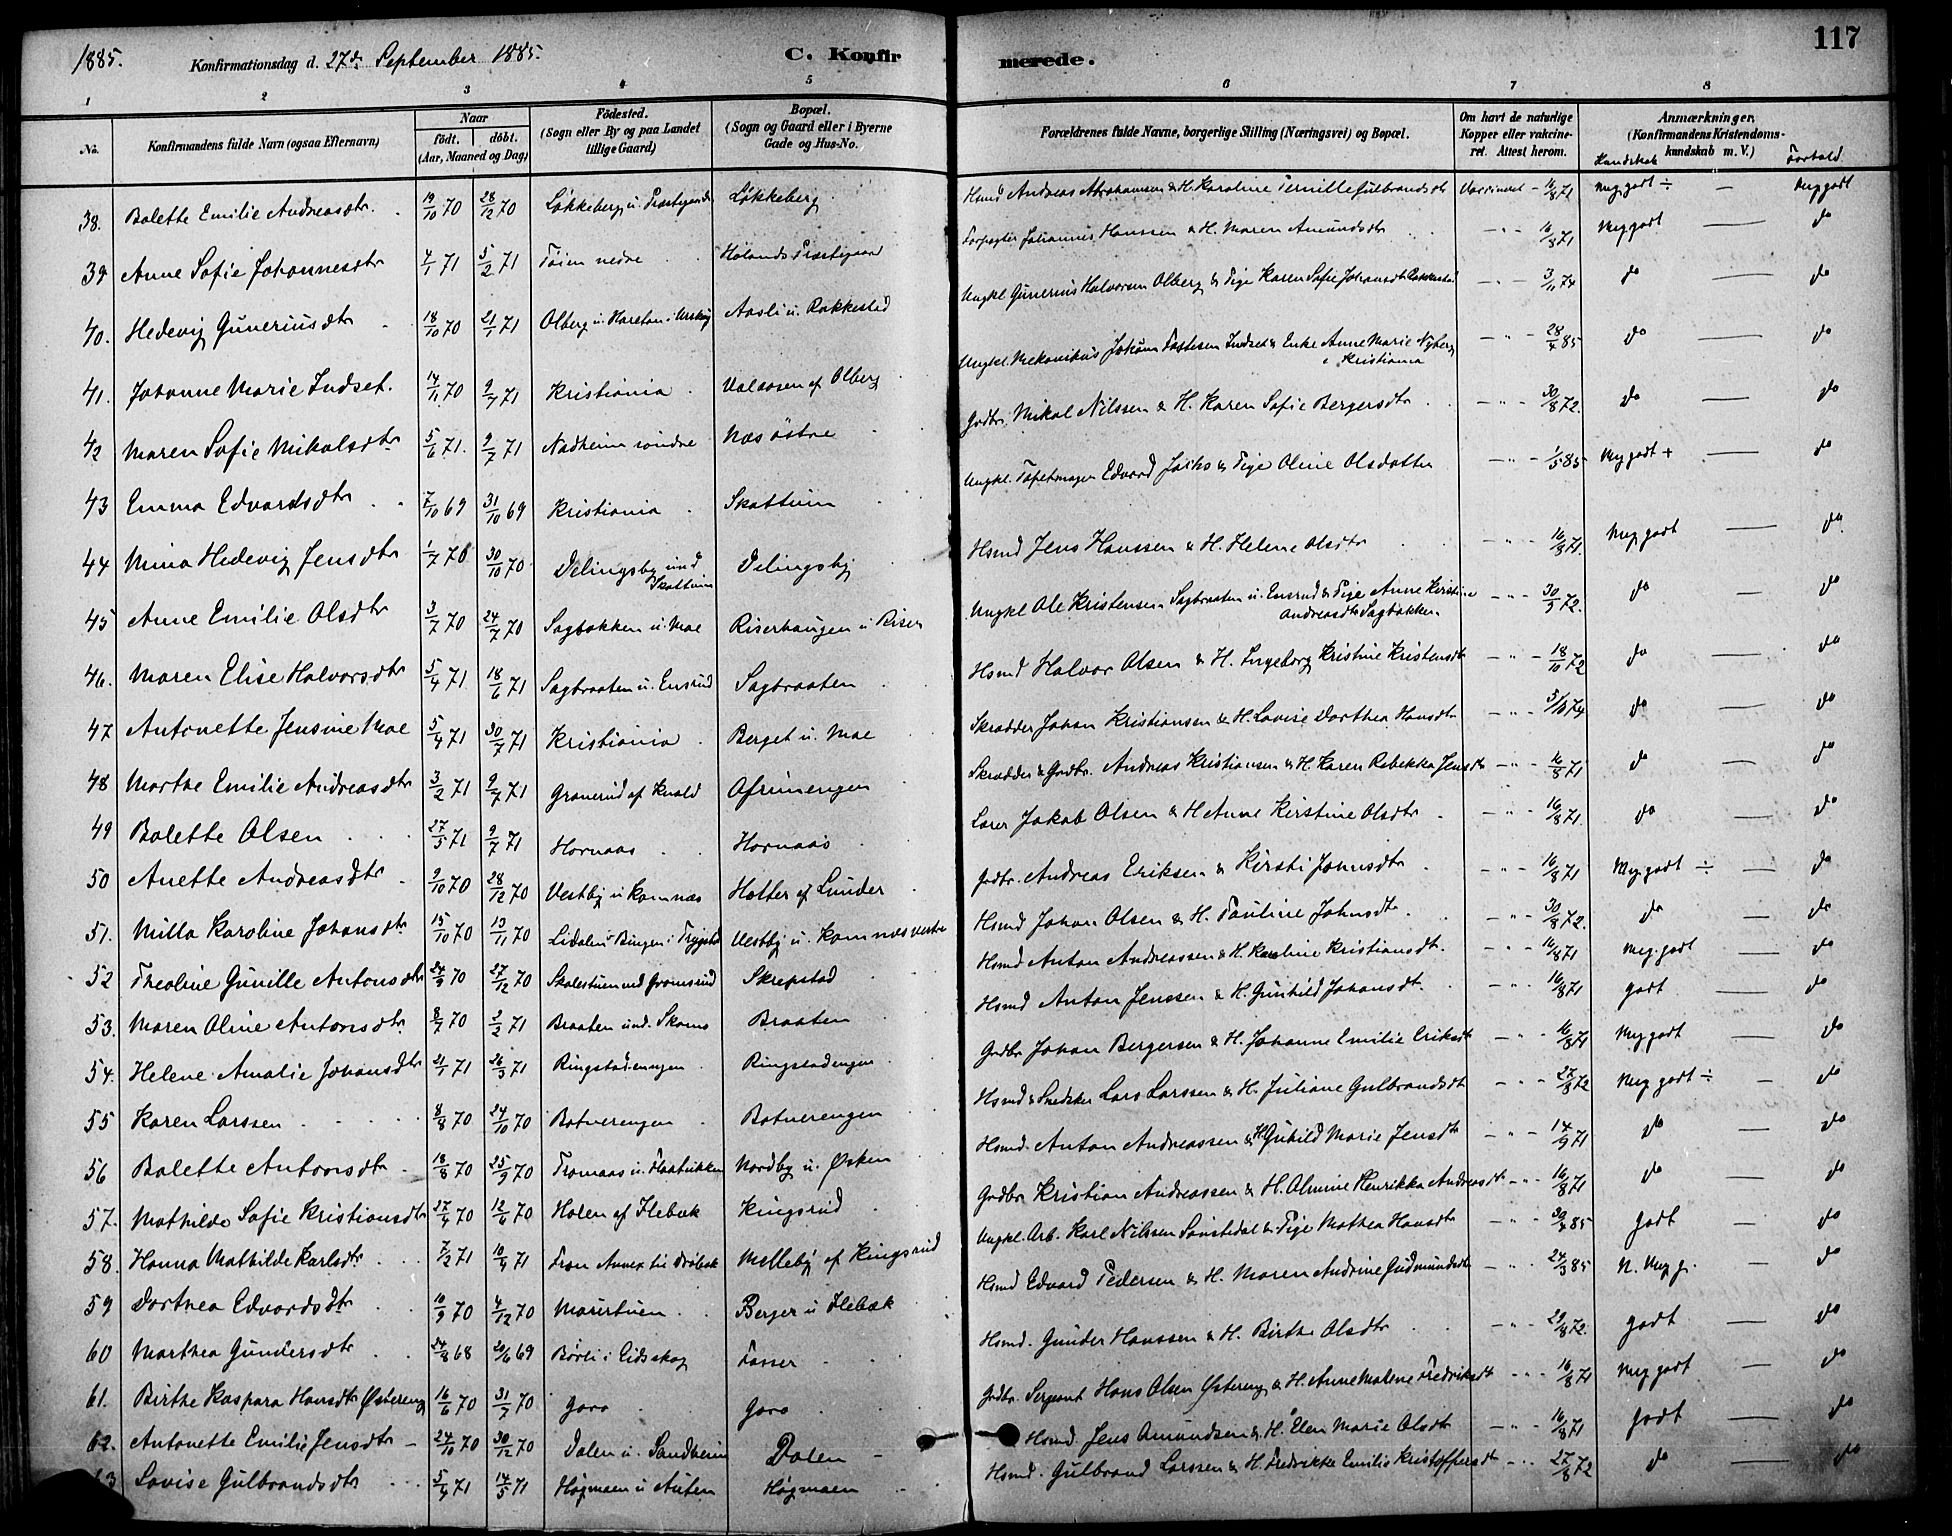 117
1885.
Konfirmationsdag d. 27de September 1885.
C. Konfirmerede.
1 2 3 4 5 6 7 8
No.
Konfirmandens fulde Navn (ogsaa Efternavn)
Naar
født. døbt.
(Aar, Maaned og Dag)
Födested.
(Sogn eller By og paa Landet tillige Gaard)
Bopæl.
(Sogn og Gaard eller i Byerne Gade og Hus-No.
Forældrenes fulde Navne, borgerlige Stilling (Næringsvei) og Bopæl.
Om havt de naturlige Kopper eller vakcineret. Attest herom.
Anmærkninger,
(Konfirmandens Kristendomskundskab m. V.)
Kundskab Forhold
38. Bolette Emilie Andreasdtr. 19/10 70 28/12 70 Løkkeberg u. Løkkeberg Hsmd Andreas Abrahamsen & H. Karoline Pernille Gulbrandsdtr Vaccineret - 16/8 72 Meg. godt ÷ — Meg godt
39 Anne Sofie Johannesdtr 4/1 71 5/2 71 Töien nedre Hölands Præstegaard Forpagter Johannes Hanssen & H. Maren Amundsdtr — " — 16/8 71 Meg godt — do
40. Hedevig Guneriusdtr 18/10 70 21/1 71 Olberg u. Haretan i Urskog Aasli u. Rakkestad Ungkl Gunerius Halvorsen Olberg & Pige Karen Sofie Johansdtr Rakkestad — " — 3/11 74 do — do
41. Johanne Marie Indset. 14/11 70 9/7 71 Kristiania Valaasen af Olberg Ungkl. Mekanikus Johan Indset & Enke Anne Marie Nyberg i Kristiania — " — 28/4 85 do — do
42 Maren Sofie Mikalsdtr 5/6 71. 9/7 71 Nadheim söndre Næs östre Gdbr. Mikal Nilssen & H. Karen Sofie Bergersdtr — " — 30/8 72. do — do
43 Emma Edvardsdtr 7/10 69 31/10 69 Kristiania Skattum Ungkl. Tapetmager Edvard & Pige Oline Olsdatter — " — 1/5 85 Meg godt + — do
44 Mina Hedevig Jensdtr 1/7 70 30/10 70 Delingsby und Skattum Delingsby Hsmd Jens Hanssen & H. Helene Olsdtr — " — 16/8 71. Meg. godt — do
45 Anne Emilie Olsdtr 3/7 70 24/7 70 Sagbakken u. Moe Riserhaugen u Riser Ungkl Ole Kristensen Sagbraaten u. Ensrud & Pige Anne Kirstine Andreasdtr Sagbakken — " — 30/9 72. do — do
46. Maren Elise Halvorsdtr 5/4 71 18/6 71 Sagbraaten u. Ensrud Sagbraaten Hsmd Halvor Olsen & H. Ingeborg Kristine Kristensdtr — " — 18/10 72 do — do
47 Antonette Jensine Moe 5/4 71 30/7 71 Kristiania Berget u. Moe Skrædder Johan Kristiansen & H. Lovise Dorthea Hansdtr — " — 5/10 74 do — do
48 Marthe Emilie Andreasdtr 3/2 71 9/7 71 Granerud af Kvald Ofrimengen Skrædder & Gdbr. Andreas Kristiansen & H. Karen Rebekka Jensdtr — " — 16/8 71 do — do
49 Bolette Olsen 27/5 71 9/7 71 Hornaas Hornaas Lærer Jakob Olsen & H Anne Kirstine Olsdtr — " — 16/8 71. do — do
50 Anette Andreasdtr 9/10 70 28/12 70 Vestby u Komnæs Holter af Lunder Gdbr. Andreas Eriksen & Kirsti Johnsdtr — " — 16/8 71 Meg godt ÷ — do
51. Milla Karoline Johansdtr 15/10 70 13/11 70 Lidalen u Bingen i Trygstad Vestby u. Komnæs vestre Hsmd Johan Olsen & H. Pauline Johnsdtr. — " — 30/8 72. do — do
52 Theoline Gunille Antonsdtr 24/9 70 27/12 70 Skolestuen ved Gromsrud Skrepstad Hsmd Anton Andreassen & H. Karoline Kristiansdtr. — " — 16/8 71 Meg. godt — do
53. Maren Oline Antonsdtr 8/7 70 2/2 71 Braaten und. Braaten Hsmd Anton Jenssen & H. Gunhild Johansdtr. — " — 16/8 71 godt — do
54. Helene Amalie Johansdtr 21/1 71 26/3 71 Ringstadengen Ringstadengen Gdbr Johan Bergersen & H. Johanne Emilie Eriksdtr — " — 16/8 71 Meg godt — do
55 Karen Larssen 8/8 70 24/10 70 Botnerengen Botnerengen Hsmd & Snedker Lars Larssen & H. Juliane Gulbrandsdtr — " — 27/8 72 Meg godt ÷ — do
56 Bolette Antonsdtr 18/8 70 25/9 70 Tromaas u. Nordby u. Øsken Hsmd. Anton Andreassen & H. Gunhild Marie Jensdtr — " — 14/9 71 do — do
57. Mathilde Sofie Kristiansdtr 27/4 70 12/6 70 Holen af Ilebæk Kingsrud Gdbr Kristian Andreassen & H. Olmine Henrikka Andreasdtr — " — 16/8 71 do — do
58. Hanna Mathilde Karlsdtr. 7/2 71 10/4 71 Fron Annex til Drøbak Melleby af Kingsrud Ungkl. Arb. Karl Nilssen & Pige Mathea Hansdtr — " — 30/4 85 godt — do
59 Dorthea Edvardsdtr 10/9 70 4/12 70 Maurtuen Berger u Ilebæk Hsmd Edvard Pedersen & H. Maren Andrine Gudmundsdtr — " — 24/3 85 N. Meg g. — do
60 Marthea Gundersdtr 24/8 68 20/6 69 Børli i Eidskog Fosser Hsmd. Gunder Hanssen & H. Birthe Olsdtr — " — 29/8 72. godt — do
61. Birthe Kaspara Hansdtr Østereng 16/6 70 31/7 70 Garo Garo Gdbr. Sergeant Hans Olsen Østereng & H. Anne Malene Fredriksdtr — " — 16/8 71 Meg godt — do
62. Antonette Emilie Jensdtr 24/10 70 30/12 70 Dalen u. Sandheim Dalen Hsmd. Jens Amundsen & H. Elen Marie Olsdtr — " — 16/8 71 godt — do
63 Lovise Gulbrandsdtr 5/4 71 14/5 71 Høgmoen u Auten Høgmoen Hsmd. Gulbrand Larssen & H. Fredrikke Emilie Kristoffersdtr — " — 27/8 72 do — do